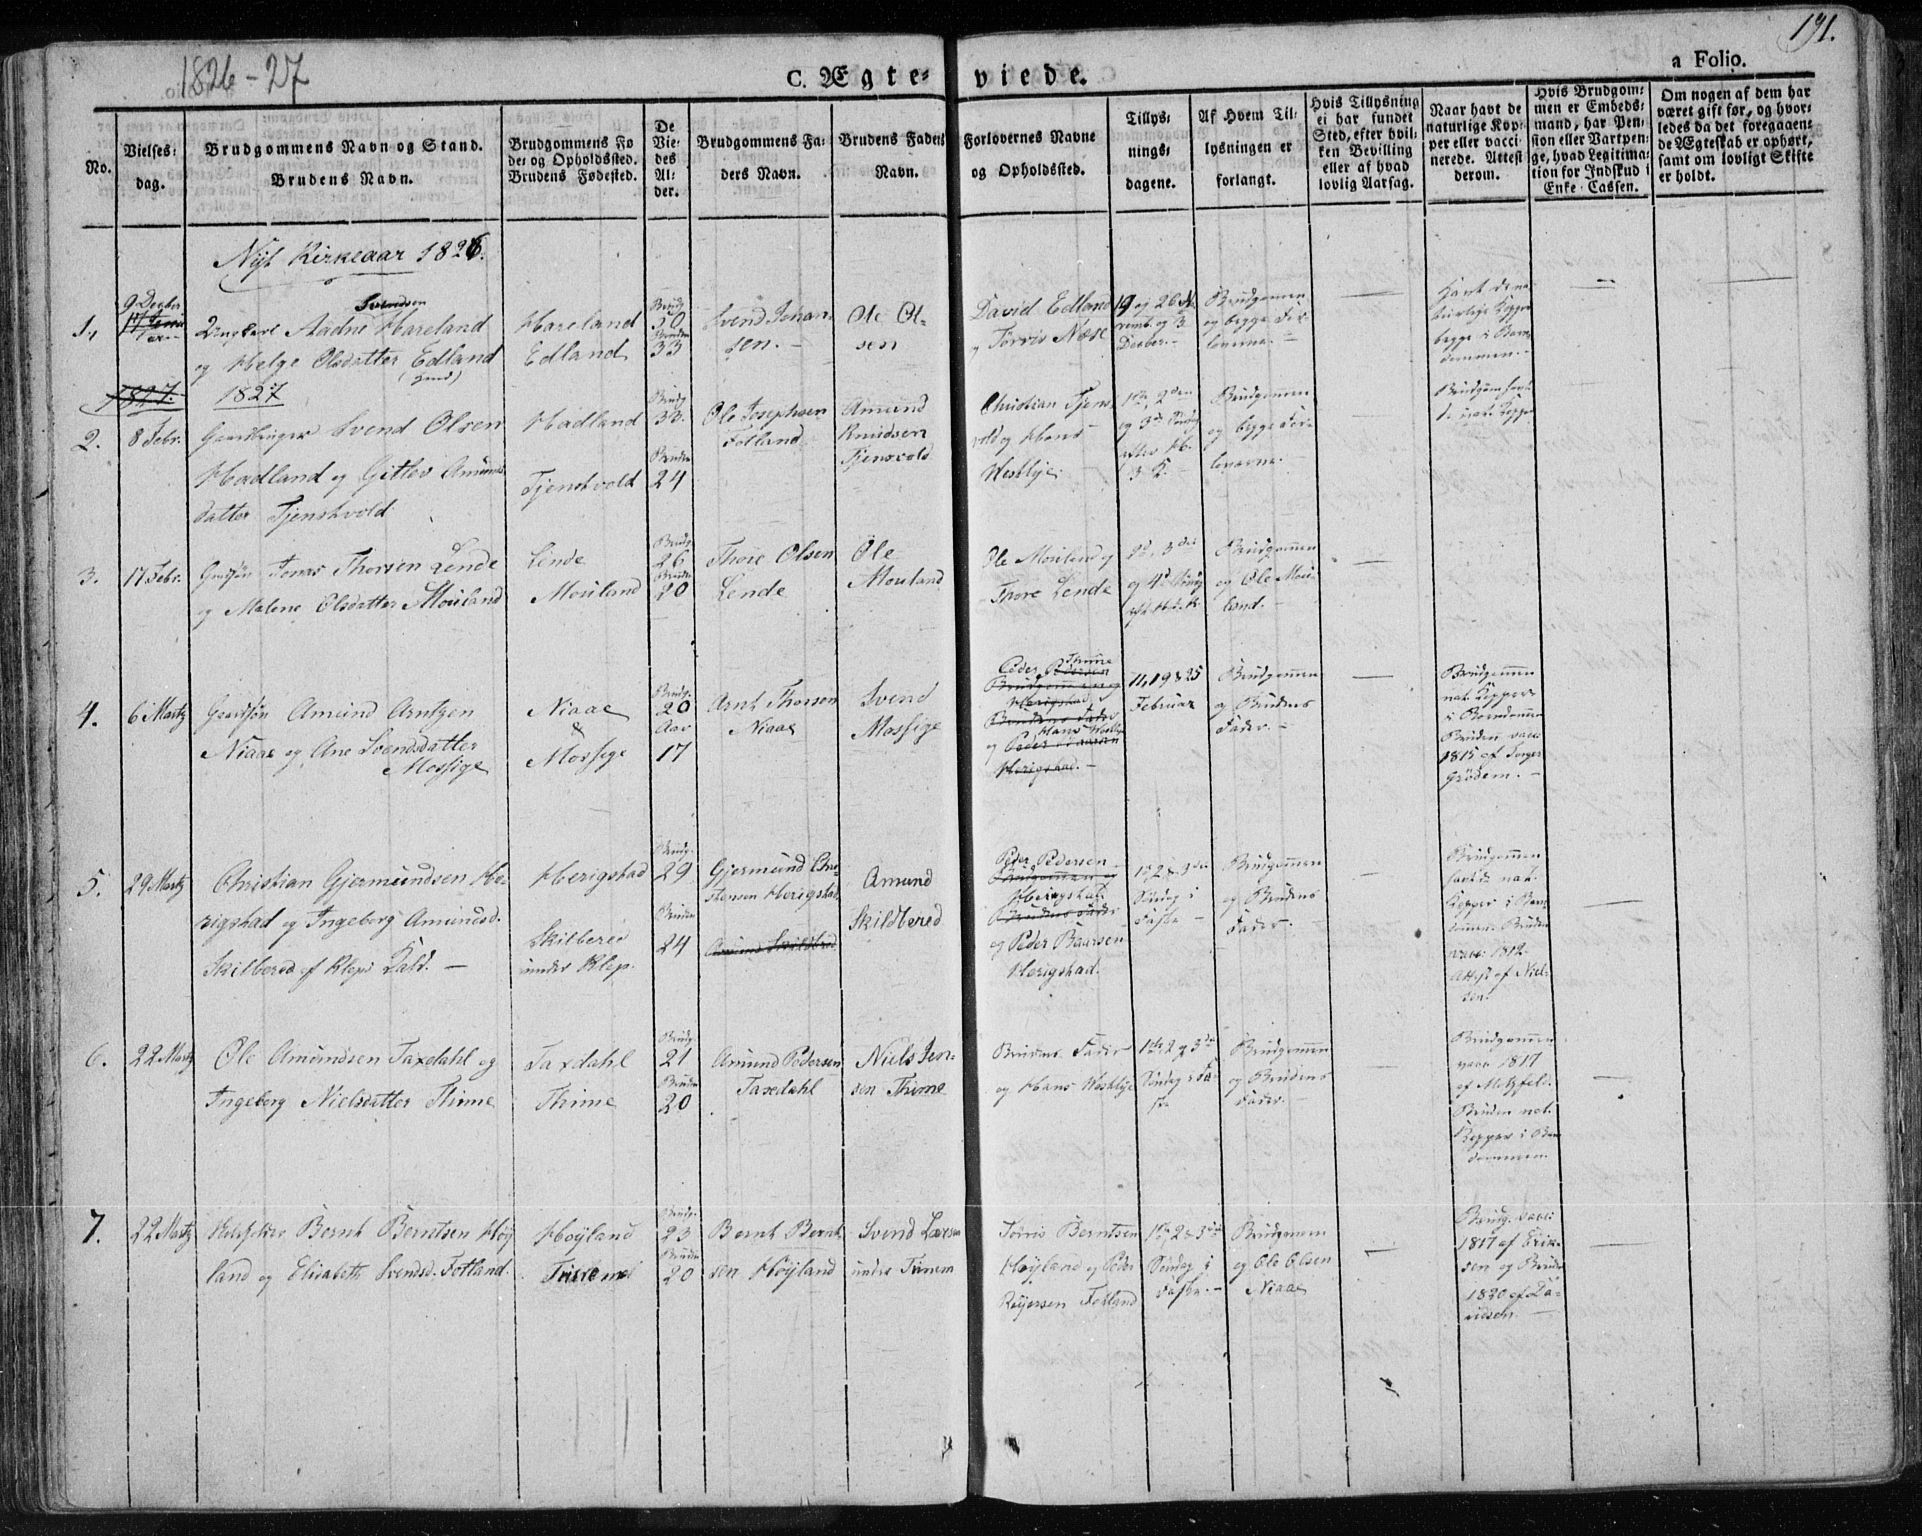 1826-27
C. Ægte-viede.
a Folio.
191.
No.
Vielses-
dag.
Brudgommens Navn og Stand.
Brudens Navn.
Brudgommens Fø
de- og Opholdssted.
Brudens Fødested.
De
Vie-
des
Al-
der.
Brudgommens Fa-
ders Navn.
Brudens Faders
Navn.
Forlovernes Navne
og Opholdssted.
Tillys-
nings-
dagene.
Af Hvem Til-
lysningen er
forlangt.
Hvis Tillysning
ei har fundet
Sted, efter hvil-
ken Bevilling
eller af hvad
lovlig Aarsag.
Naar havt de
naturlige Kop-
per eller vacci-
nerede. Attest
derom.
Hvis Brudgom-
men er Embeds-
mand, har Pen-
sion eller Vartpen-
ge, hvad Legitima-
tion for Indskud i
Enke-Cassen.
Om nogen af dem har
været gift før, og hvor-
ledes da det foregaaen-
de Ægteskab er ophørt,
samt om lovligt Skifte
er holdt.
Nyt Kirkeaar 1826.
1.
9 Decber
Svendsen
Ungkarl Aadne Hareland
og Helge Olsdatter Edland
Hareland
Edland
Brudg.
30
Bruden
33
Svend Johan-
sen.
Ole Ol-
sen
David Edland
og Torris Næse
19 og 26 No-
vemb. og 3
Decber.
Brudgommen
og begge For-
loverne.
Havt de na-
turlige Kopper
begge i Barn-
dommen.
1827.
1827
2.
8 Febr.
Gaardbruger Svend Olsen
Hadland og Gitlov Amunds
datter Tjenstvold
Hadland
Tjenstvold
Brudg.
33.
Bruden
24
Ole Josephsen
Fotland
Amund
Knudsen
Tjensvold
Christian Tjens-
vold og Hans
Westlye.
1ste, 2den
og 3die Søndag
efter H.
3 K.
Brudgommen
og begge For-
loverne.
3.
17 Febr.
Jonas Thorsen Lende
og Malene Olsdatter Mouland
Lende
Mouland
Brudg.
26
Bruden
20
Thore Olsen
Lende
Ole
Mouland
Ole Mouland og
Thore Lende
og 4de Søndag
Brudgommen
og Ole Mou-
land.
4.
6 Martz
Gaardsøn Amund Arntzen
Niaae og Ane Svendsdatter
Mossige
Niaae
&
Mossige
Brudg.
20
Aar
17
Arnt Thorsen
Niaae
Svend
Mossige
Thime
Peder Pedersen
Brudgommen og
Herigstad
Brudens Fader
Hans Westlye
og Peder
Herigstad.
11, 19 & 25
Februar
Brudgommen
og Brudens
Fader.
Brudgommen
nat. Kopper
i Barndommen
Bruden vacc.
1815 af
Grødem.
5.
29 Martz
Christian Gjermundsen He-
rigstad og Ingeborg Amundsd.
Skilbered af Klep Kald.
Herigstad
Skilbered
under Klep.
Brudg.
29
Bruden
24
Gjermund Chri-
stensen Herigstad
Amund Skildbred
Amund
Skildbered
Peder Pedersen
Brudgommen og
Herigstad
Brudens Fader
og Peder Baarsen
Herigstad.
1ste 2 & 3die
Søndag i
Faste.
Brudgommen
og Brudens
Fader.
Brudgommen
havt de nat.
Kopper i Barn-
dommen. Bruden
vacc. 1812.
Attest af Niel-
sen.
6.
22 Martz
Ole Amundsen Taxdahl og
Ingeborg Nielsdatter Thime
Taxdahl
Thime
Brudg.
21
Bruden
20
Amund Pedersen
Taxdahl
Niels Jen-
sen Thime
Brudens Fader
og Hans Westlye
1ste, 2 og 3die
Søndag i Fa-
ste
Brudgommen
og Brudens
Fader.
Brudgommen
vacc. 1817
af Metzfeld.
Bruden nat.
Kopper i Barn-
dommen.
7.
22 Martz
Bernt Berntsen Høy
land og Elisabeth Svendsd. Fotland.
Høyland
Brudg.
23
Bruden
20
Bernt Bernt-
sen Høyland
Svend Larsen
under Timem
Torris Berntsen
Høyland og Peder
Reyersen Fotland
1ste, 2 & 3die
Søndag i
Faste.
Brudgommen
og Ole Olsen
Niaae
Brudg. vacc.
1817 af Erik-
sen og Bruden
1820 af Da-
vidsen.